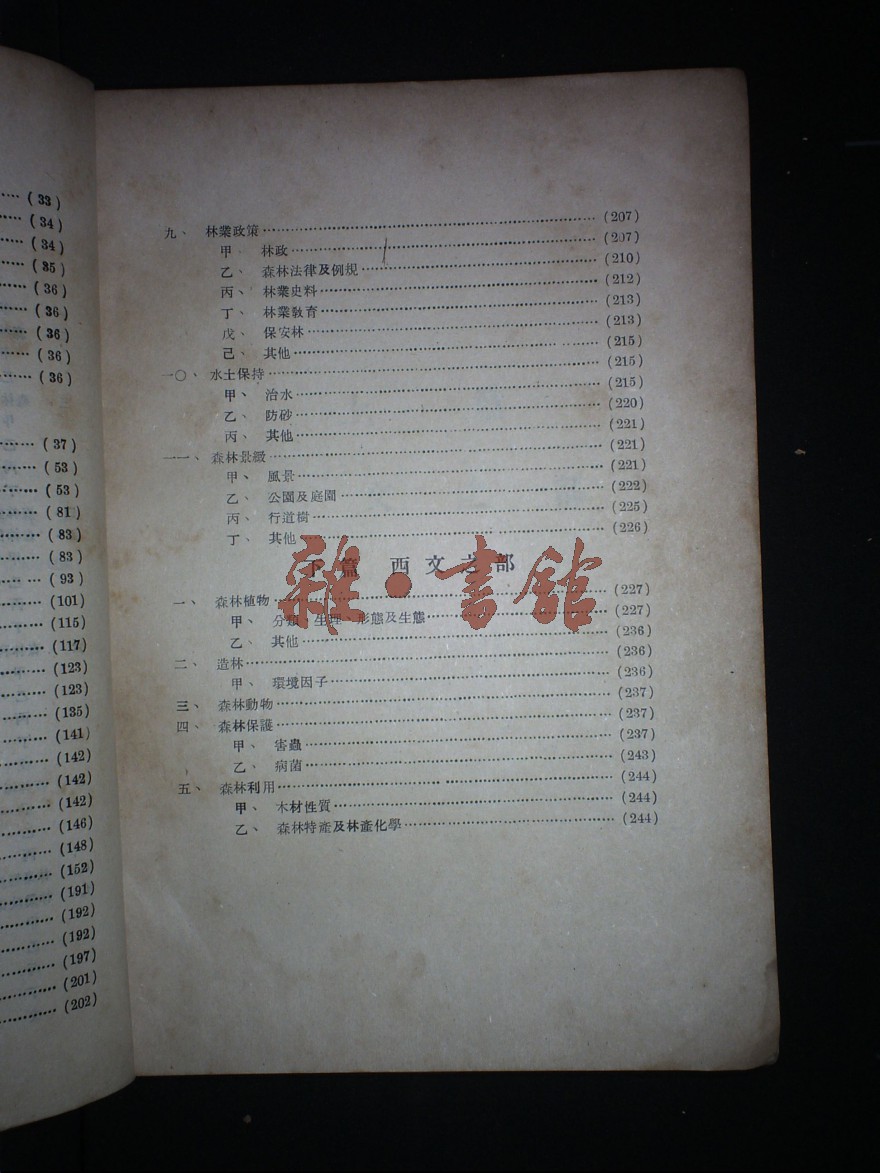 (33)
(34)
(34)
(35)
(36)
(36)
(36)
(36)
(36)
(37)
(53)
(53)
(81)
(83)
(83)
(93)
(101)
(115)
(117)
(123)
(123)
(135)
(141)
(142)
(142)
(142)
(146)
(148)
(152)
(191)
(192)
(192)
(197)
(201)
(202)
九、 林業政策……(207)
甲、 林政……(207)
乙、 森林法律及例規……(210)
丙、 林業史料……(212)
丁、 林業敎育……(213)
戊、 保安林……(213)
己、 其他……(215)
一〇、 水土保持……(215)
甲、 治水……(215)
乙、 防砂……(220)
丙、 其他……(221)
一一、 森林景緻……(221)
甲、 風景……(221)
乙、 公園及庭園……(222)
丙、 行道樹……(225)
丁、 其他……(226)
下篇 西文之部
雜·書館
一、 森林植物……(227)
甲、 分類、生理、形態及生態……(227)
乙、 其他……(236)
二、 造林……(236)
甲、 環境因子……(236)
三、 森林動物……(237)
四、 森林保護……(237)
甲、 害蟲……(237)
乙、 病菌……(243)
五、 森林利用……(244)
甲、 木材性質……(244)
乙、 森林特產及林產化學……(244)